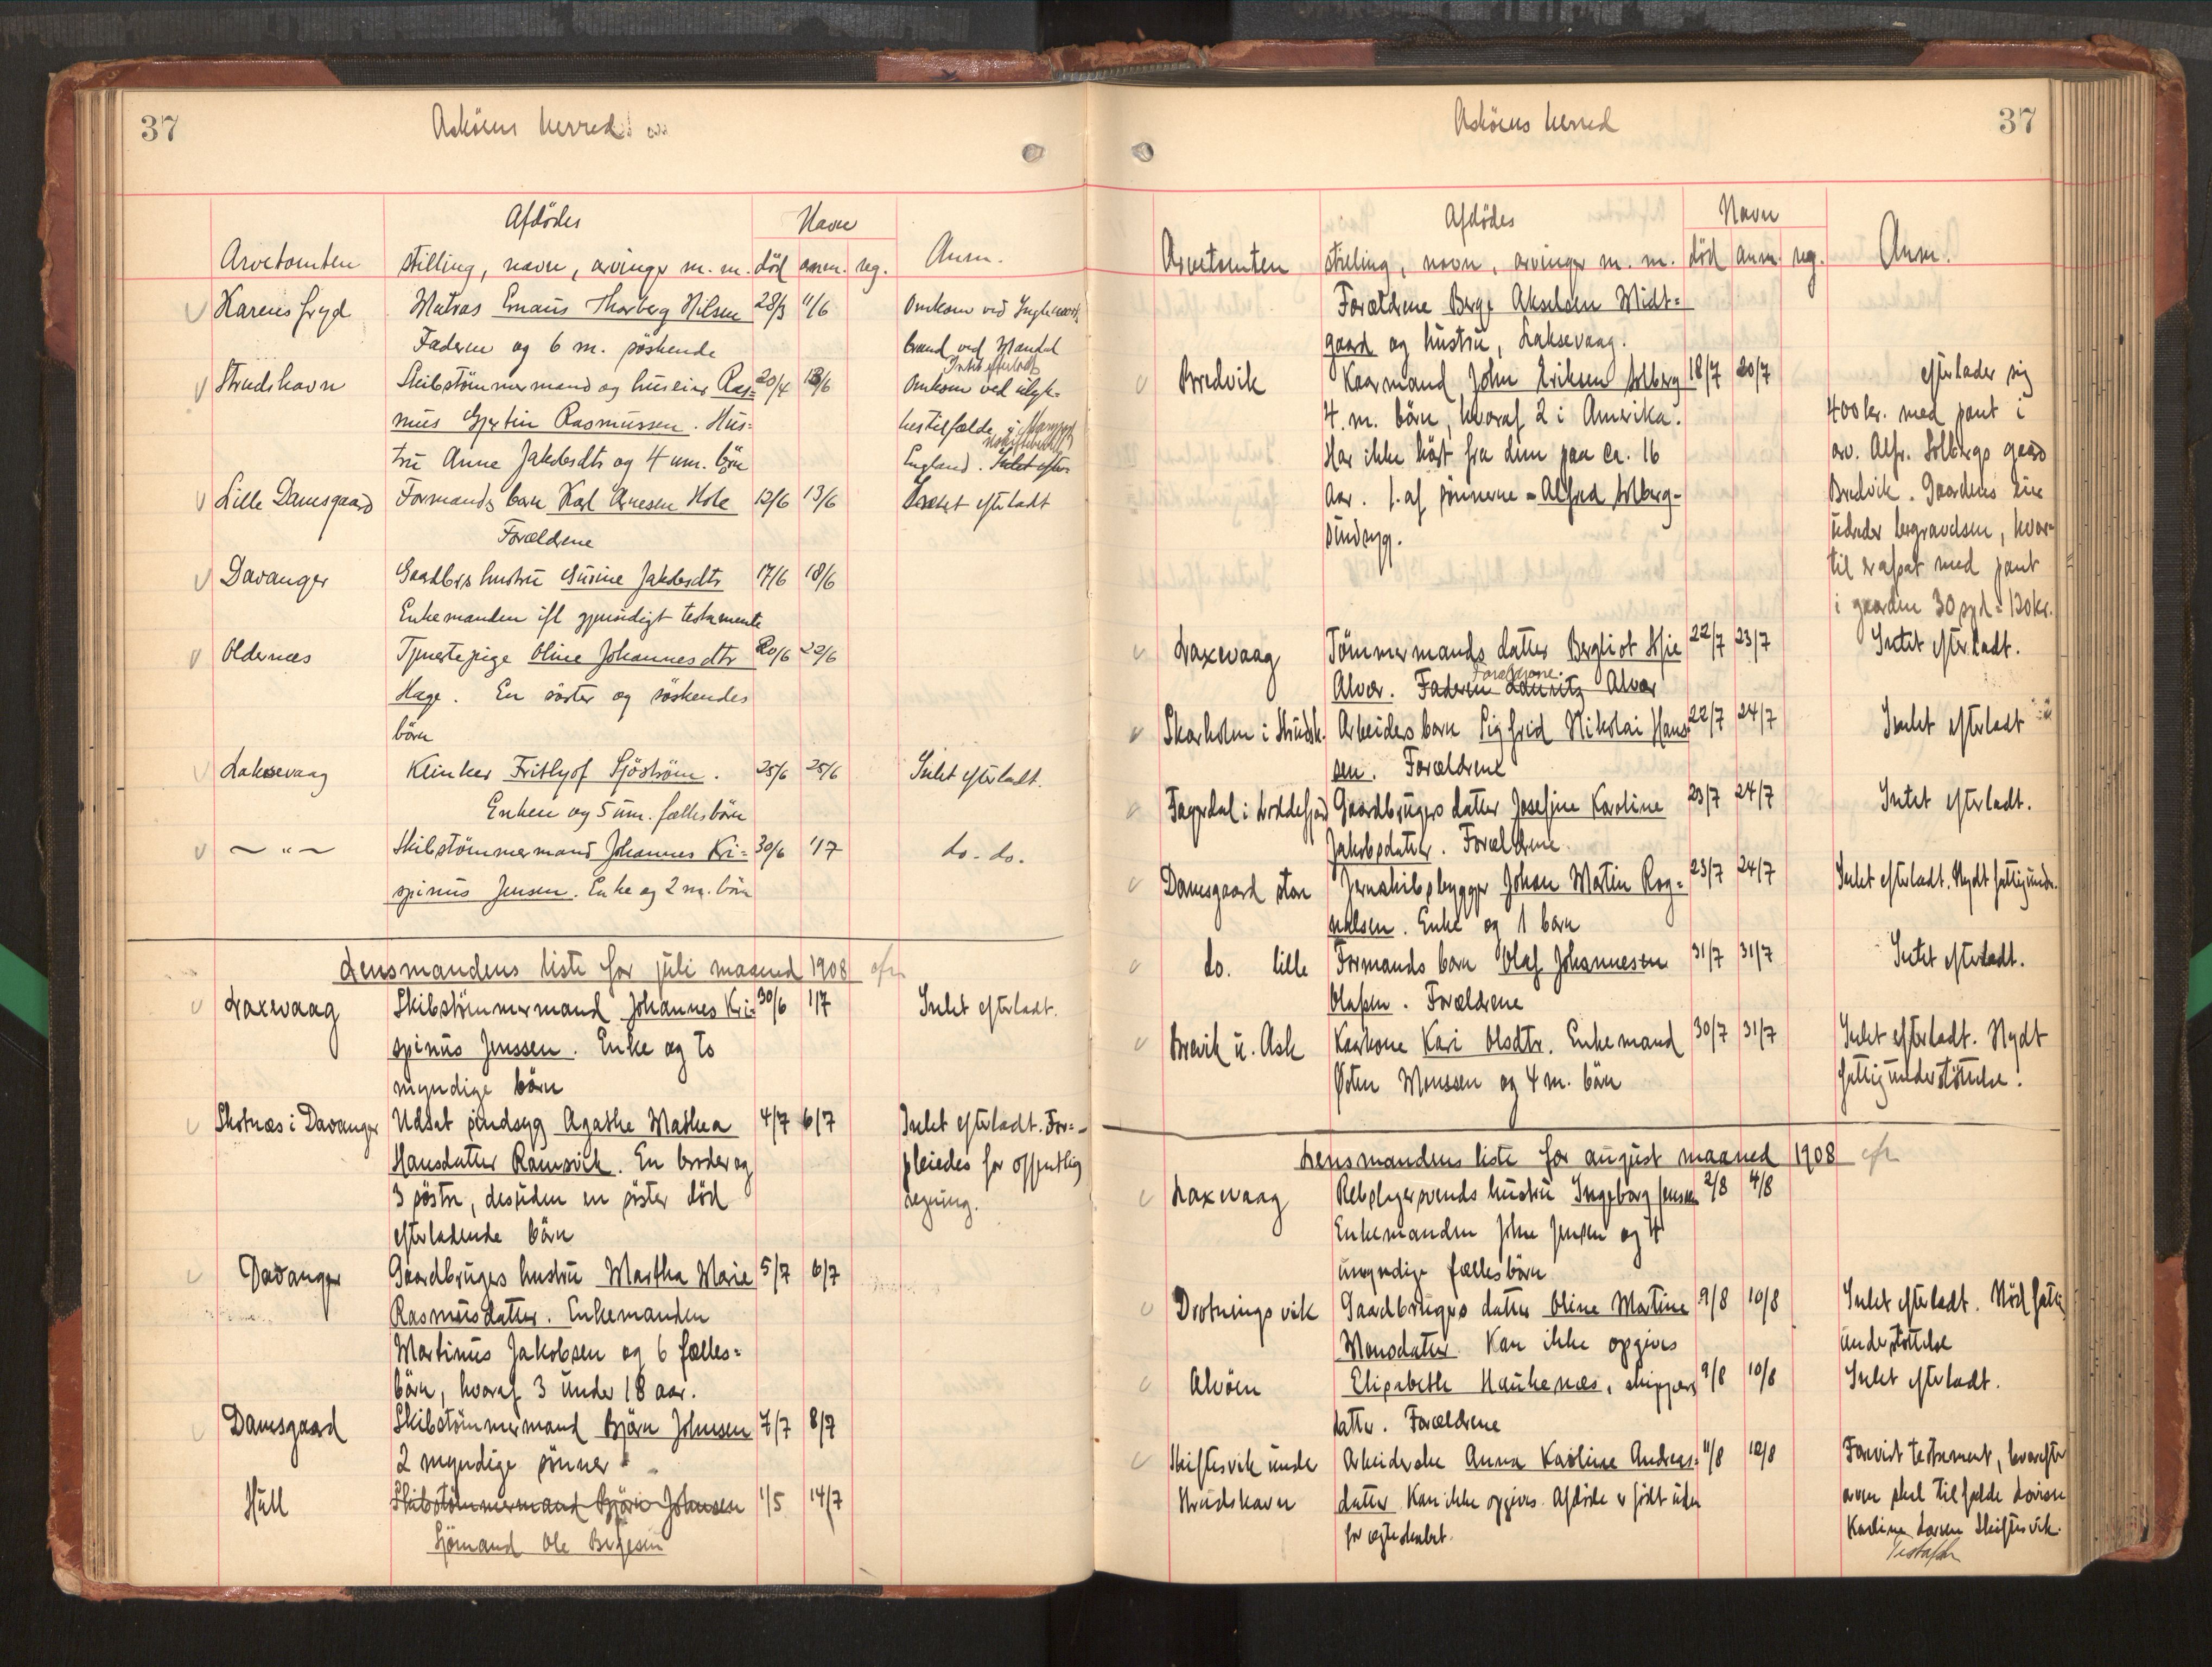 37
Askøens herred
Afdödes
Navn
Arvetomten stilling, navn, arvinger m. m. död anm. reg. Anm.
Karens fryd Matros Emaus Thorberg Nilsen 28/3 11/6 Omkom ved
Faderen og 6 m. söskende brand ved Mandal
Intet efterladt
Strudshavn Skibstömmermand og huseier Ras= 20/4 13/6 Omkom ved ulyk=
mus Gjertin Rasmussen. Hus= kestilfælde i
tru Anne Jakobsdtr og 4 um. börn England. Intet efter
Lille Damsgaard Formands barn Karl Arnesen Hole 12/6 13/6 Intet efterladt
Forældrene
Davanger Gaardbrs hustru Gurine Jakobsdtr 17/6 18/6
Enkemanden ifl gjensidigt testamente
Oldernæs Tjenestepige Oline Johannesdtr 20/6 22/6
Hage. En söster og söskendes
börn
Laksevaag Klinker Frithjof Sjöström. 25/6 25/6 Intet efterladt.
Enken og 5 um. fællesbörn
— " — Skibstömmermand Johannes Kri= 30/6 1/7 do. do.
spinus Jensen. Enke og 2 m. börn
Lensmandens liste for juli maaned 1908
Laxevaag Skibstömmermand Johannes Kri= 30/6 1/7 Intet efterladt.
spinus Jenssen. Enke og to
myndige börn
Skotnæs i Davanger Udsat sindsyg Agathe Mathea 4/7 6/7 Intet efterladt. For=
Hansdatter Ramsvik. En broder og pleiedes for offentlig
3 söstre, desuden en söster död regning.
efterladende börn
Davanger Gaardbrugers hustru Martha Marie 5/7 6/7
Rasmusdatter. Enkemanden
Martinus Jakobsen og 6 fælles=
börn, hvoraf 3 under 18 aar.
Damsgaard Skibstömmermand Björn Johnsen 7/7 8/7
2 myndige sönner
Hüll Skibstömmermand Björn Johnsen 1/5 14/7
Sjömand Ole Birgesen
Askøens herred
37
Afdödes
Navn
Arvetomten stilling, navn, arvinger m. m. död anm. reg. Anm.
Forældrene Berge Akselsen Midt=
gaard og hustru, Laksevaag.
Bredvik Kaarmand John Eriksen Solberg 18/7 20/7 efterlader sig
4 m. börn, hvoraf 2 i Amerika. 400 kr. med pant i
Har ikke hört fra dem paa ca. 16 arv. Alfr. Solbergs gaard
aar. 1 af sönnerne - Alfred Solberg - Bredvik. Gaardens eier
sindsyg. udreder begravelsen, hvor=
til er afsat med pant
i gaarden 30 spd = 120 kr.
Laxevaag Tömmermands datter Bergliot Alvær. 22/7 23/7 Intet efterladt.
Forældrene.
Faderen Lauritz Alvær
Skarholm i Strudsh. Arbeiders barn Sigfrid Nikolai Hans= 22/7 24/7 Intet efterladt
sen. Forældrene
Fagerdal i Loddefjord Gaardbrugers datter Josefine Karoline 23/7 24/7 Intet efterladt.
Jakobsdatter. Forældrene
Damsgaard store Jernskibsbygger Johan Martin Rag= 23/7 24/7 Intet efterladt. Nydt fattigunders.
nvalsen. Enke og 1 barn
do. lille Formands barn Olaf Johannesen 31/7 31/7 Intet efterladt.
Olafsen. Forældrene
Brevik u. Ask Kaarkone Kari Olsdtr. Enkemand 30/7 31/7 Intet efterladt. Nydt
Østen Monssen og 4 m. börn fattigunderstöttelse.
Lensmandens liste for august maaned 1908
Laxevaag Rebslagersvends hustru Ingeborg Jensen 2/8 4/8
Enkemanden John Jensen og 4
umyndige fællesbörn
Drotningsvik Gaardbrugers datter Oline Martine 9/8 10/8 Intet efterladt. Nöd fattig
Monsdatter. Kan ikke opgives understöttelse
Alvöen Elisabeth Haukenæs, skippers 9/8 10/8 Intet efterladt.
datter. Forældrene
Skiftesvik under Arbeiderske Anna Karoline Andreas= 11/8 12/8 Forevist testament, hvorefter
Strudshavn datter. Kan ikke opgives. Afdöde er födt uden arven skal tilfalde Lovise
for ægteskabet. Karline Larsen Skiftesvik.